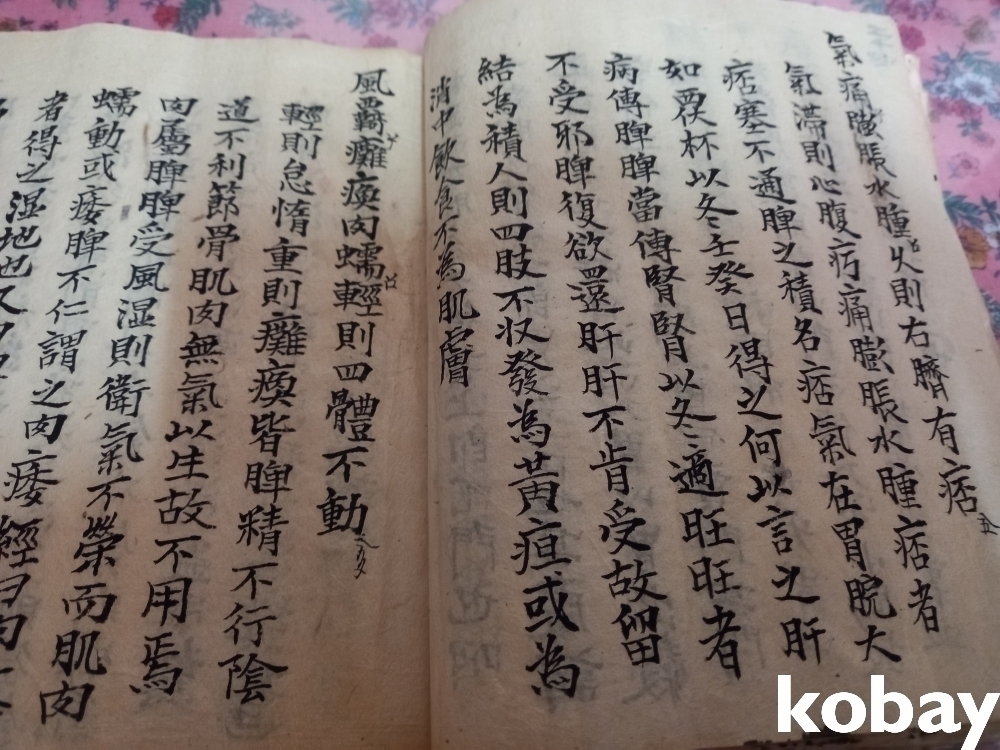 氣痛膨脹水腫火則右臍有痞
氣滯則心腹疠痛膨脹水腫痞者
痞塞不通脾之積名痞氣在胃脘大
如覆杯以冬壬癸日得之何以言之肝
病傳脾脾當傳腎腎以冬適旺旺者
不受邪脾復欲還肝肝不肯受故留
結為積人則四肢不収發為黃疸或為
消中飲食不為肌膚
風霸癱瘓肉蠕輕則四體不動
輕則怠惰重則癱瘓皆脾精不行陰
道不利節骨肌肉無氣以生故不用焉
肉屬脾脾受風湿則衛氣不榮而肌肉
蠕動或痿脾不仁謂之肉痿經曰肉
者得之湿地也又曰
kobay